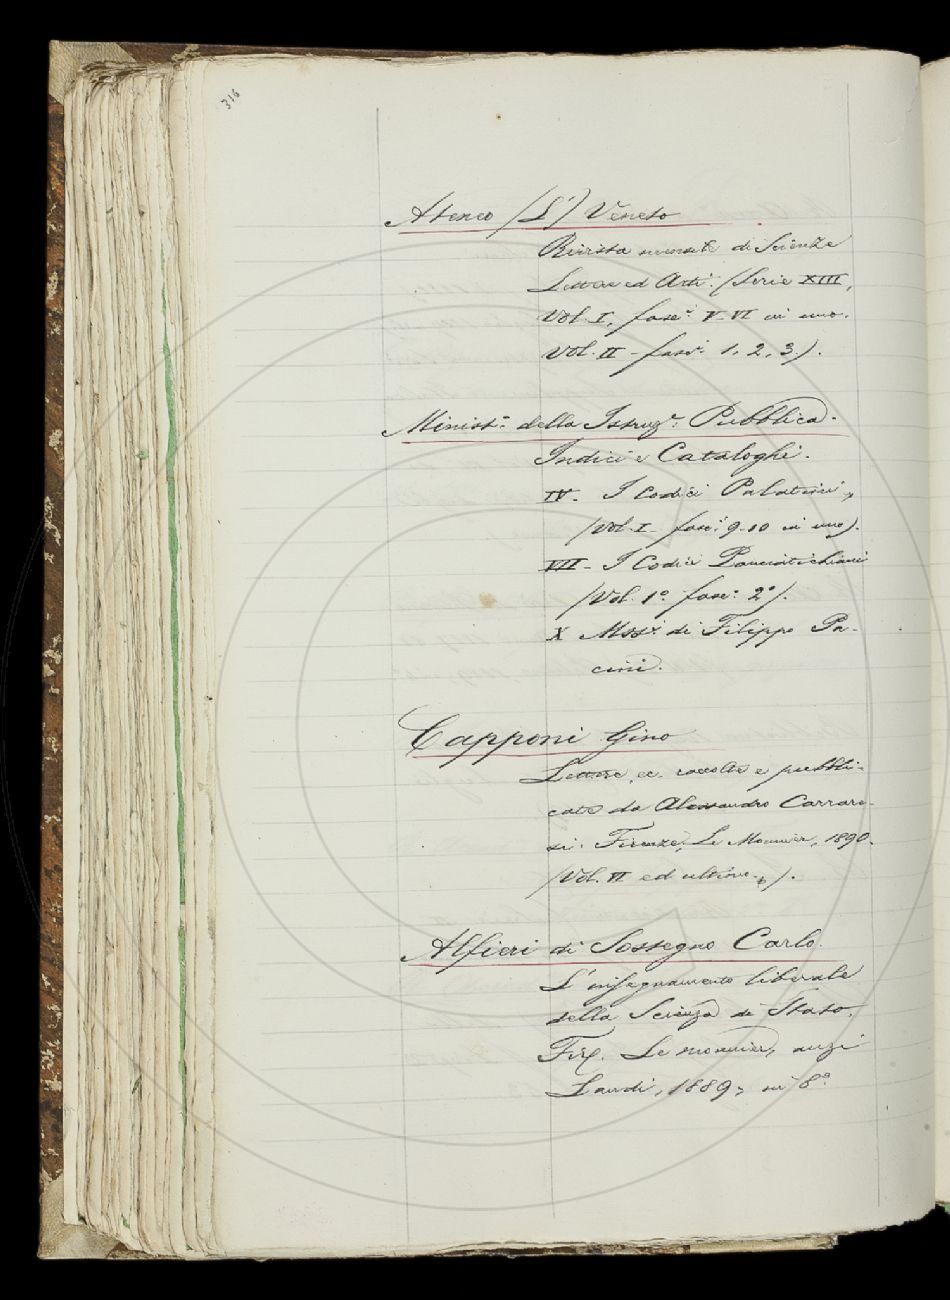 316
Ateneo (L') Veneto
Rivista mensile di Scienze
Lettere ed Arti. (Serie XIII,
Vol. I, fasci. V-VI in uno.
Vol. II - fasci. 1, 2, 3.).
Minist.o della Istruz.e Pubblica.
Indici e Cataloghi.
IV. I Codici Palatini,
(Vol. I - fasc.i 9-10 in uno).
VII - I Codici Panciatichiani
(Vol. 1.o fasc.o 2o).
X Mss.i di Filippo Pa-
cini.
Capponi Gino
Lettere, ec. raccolte e pubbli-
cate da Alessandro Carrare-
si. Firenze, Le Monnier, 1890.
(Vol. VI ed ultimo.).
Alfieri di Sostegno Carlo.
L'insegnamento liberale
della Scienza di Stato.
Fir. Le Monnier, anzi
Landi, 1889, in 8o